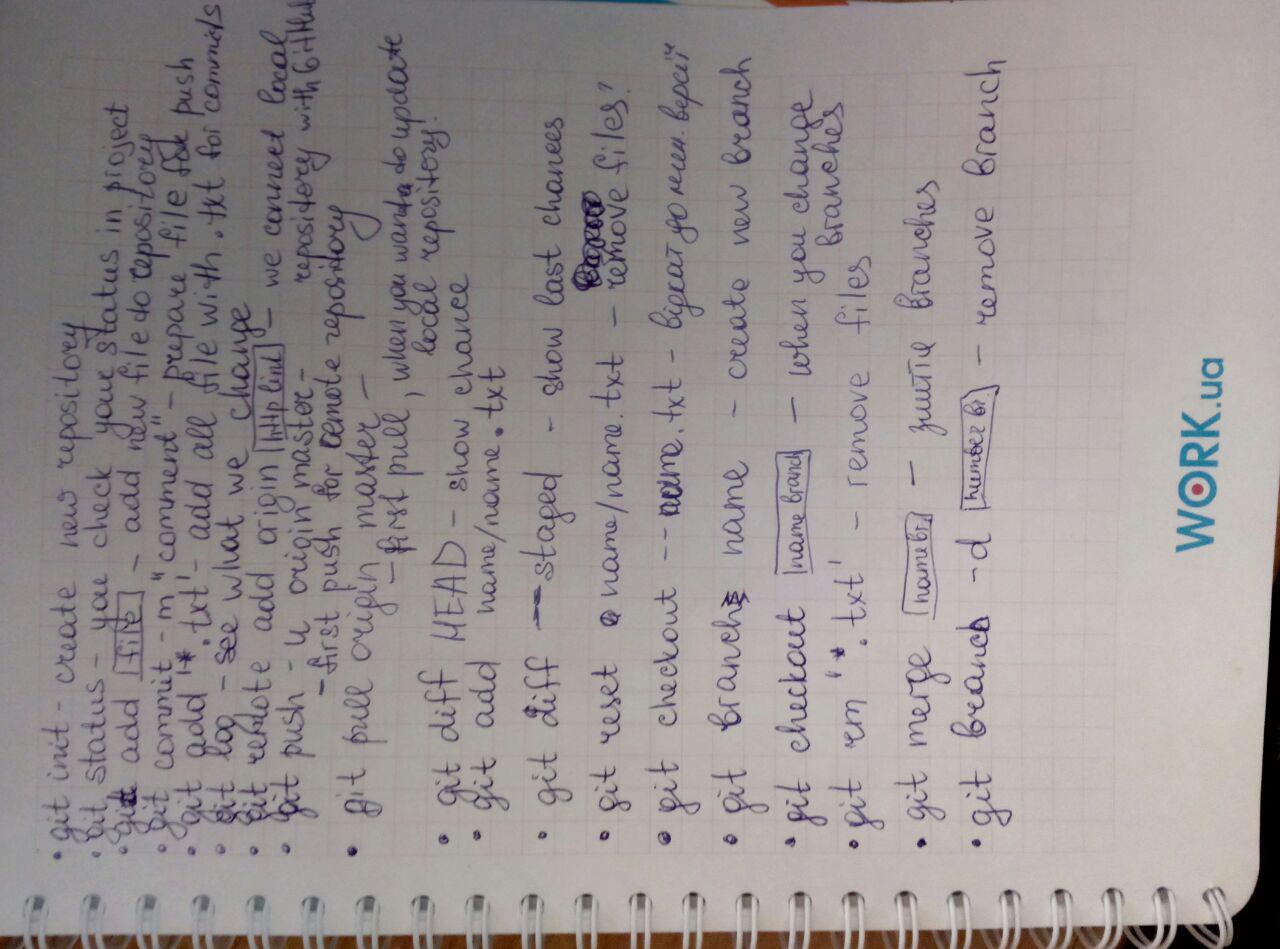 • git init - create new repository
• git status - you check your status in project
• git add file - add new file do repository
• git commit -m "comment" - prepare file for push
• git add '*.txt' - add all file with .txt for commits
• git log - see what we change
• git remote add origin http link - we connect local
repository with GitHub
• git push -u origin master -
- first push for remote repository
• git pull origin master -
- first pull, when you want do update
local repository!
• git diff HEAD - show chance
• git add name/name.txt
• git diff --staged - show last chances
• git reset name/name.txt - remove files?
• git checkout -- name.txt - відкат до мин. версії
• git branch name - create new branch
• git checkout name branch - when you change
branches
• git rm '*.txt' - remove files
• git merge name br. - злиття branches
• git branch -d number br. - remove branch
WORK.ua